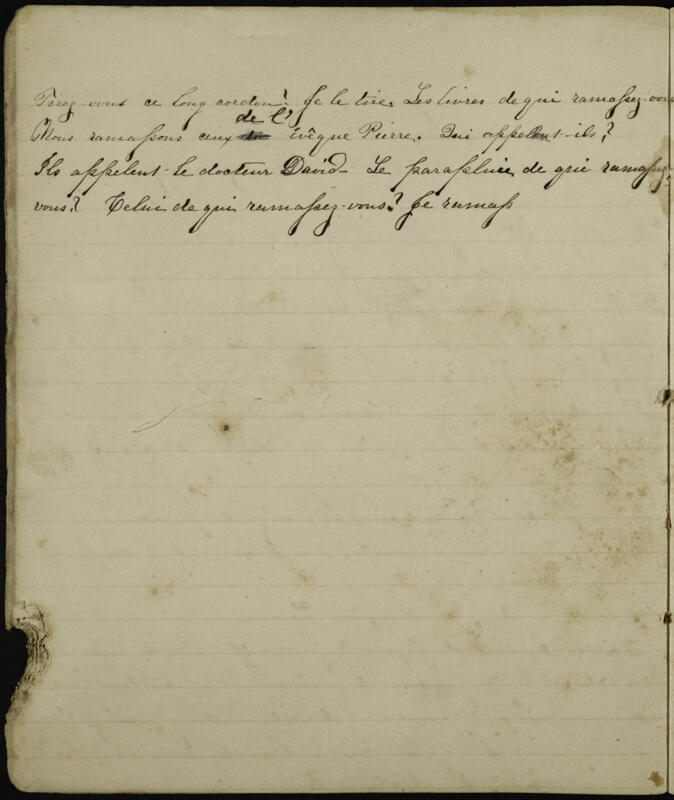 Tirez-vous ce long cordon? Je le tire. Les livres de qui ramassez-vous
de l'
Nous ramassons ceux Evêque Pierre. Qui appelent-ils?
Ils appelent le docteur David- Le parapluie de qui ramassez-
vous? Celui de qui ramassez-vous? Je ramass